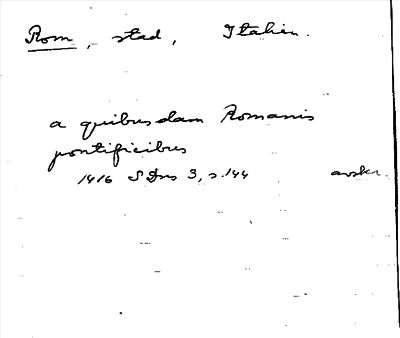 Rom, stad, Italien.
a quibusdam Romanis
pontificibus
1416 SDns 3, s. 144 avskr.